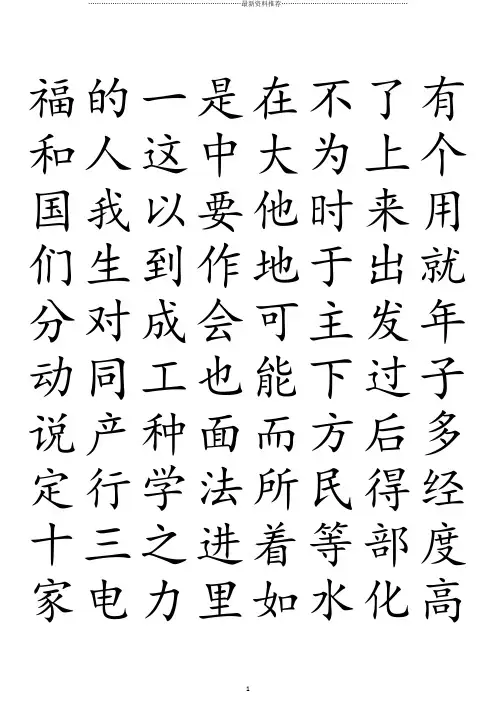 最新资料推荐
福的一是在不了有
和人这中大为上个
国我以要他时来用
们生到作地于出就
分对成会可主发年
动同工也能下过子
说产种面而方后多
定行学法所民得经
十三之进着等部度
家电力里如水化高
1